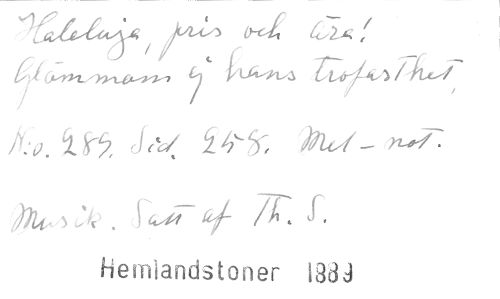 Haleluja, pris och ära!
Glömmom ej hans trofasthet,
N:o. 289. Sid. 258. Mel-not.
Musik. Satt af Th. S.
Hemlandstoner 1889